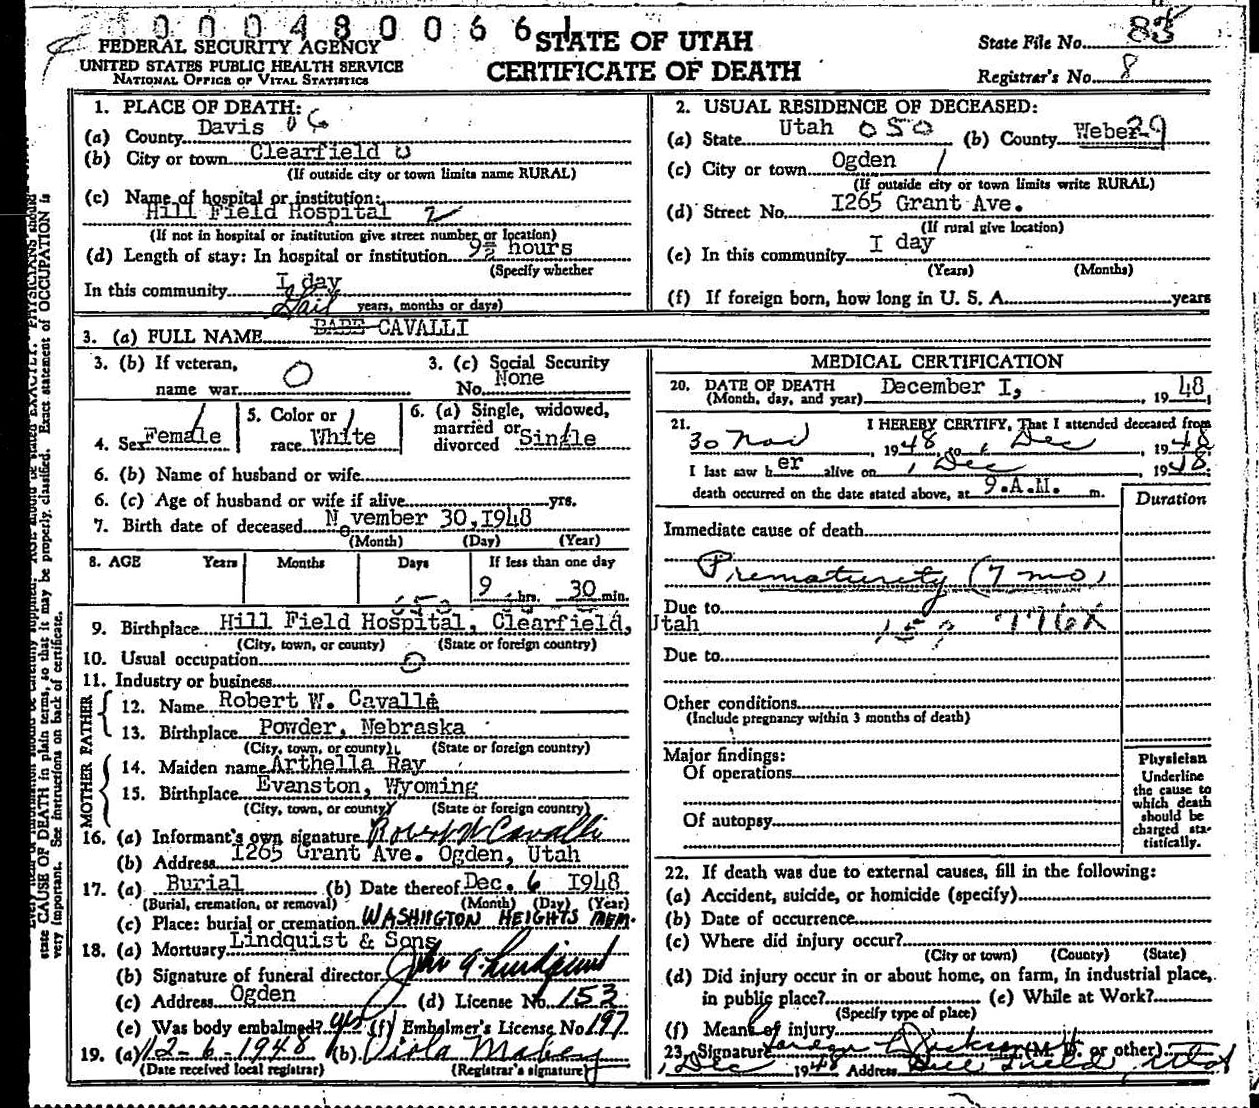 0 0 0 4 8 0 0 6 6 1
FEDERAL SECURITY AGENCY
UNITED STATES PUBLIC HEALTH SERVICE
NATIONAL OFFICE OF VITAL STATISTICS
STATE OF UTAH
CERTIFICATE OF DEATH
State File No.
Registrar's No. 8
1. PLACE OF DEATH:
(a) County Davis 06
(b) City or town Clearfield 0
(If outside city or town limits name RURAL)
(c) Name of hospital or institution:
Hill Field Hospital 2
(If not in hospital or institution give street number or location)
(d) Length of stay: In hospital or institution 9½ hours
(Specify whether
In this community I day
years, months or days)
2. USUAL RESIDENCE OF DECEASED:
(a) State Utah 050 (b) County Weber 29
(c) City or town Ogden 1
(If outside city or town limits write RURAL)
(d) Street No. I265 Grant Ave.
(If rural give location)
(e) In this community I day
(Years) (Months)
(f) If foreign born, how long in U. S. A. years
3. (a) FULL NAME Gail BABE CAVALLI
3. (b) If veteran,
name war 0
3. (c) Social Security
No. None
4. Sex Female
5. Color or
race White
6. (a) Single, widowed,
married or
divorced Single
6. (b) Name of husband or wife
6. (c) Age of husband or wife if alive yrs.
7. Birth date of deceased November 30,I948
(Month) (Day) (Year)
8. AGE Years Months Days If less than one day
9 hrs. 30 min.
9. Birthplace Hill Field Hospital, Clearfield, Utah
(City, town, or county) (State or foreign country)
10. Usual occupation 0
11. Industry or business
FATHER
12. Name Robert W. Cavalli
13. Birthplace Powder, Nebraska
(City, town, or county) (State or foreign country)
MOTHER
14. Maiden name Arthella Ray
15. Birthplace Evanston, Wyoming
(City, town, or county) (State or foreign country)
16. (a) Informant's own signature Robert W Cavalli
(b) Address I265 Grant Ave. Ogden, Utah
17. (a) Burial (b) Date thereof Dec. 6 I948
(Burial, cremation, or removal) (Month) (Day) (Year)
(c) Place: burial or cremation WASHIGTON HEIGHTS MEM.
18. (a) Mortuary Lindquist & Sons
(b) Signature of funeral director John A. Lindquist
(c) Address Ogden (d) License No. 153
(e) Was body embalmed? yes (f) Embalmer's License No 197
19. (a) 12-6-1948 (b) Viola
(Date received local registrar) (Registrar's signature)
MEDICAL CERTIFICATION
20. DATE OF DEATH December I, 1948
(Month, day, and year)
21. I HEREBY CERTIFY, That I attended deceased from
30 Nov 1948, to 1 Dec 1948
I last saw her alive on 1 Dec 1948.
death occurred on the date stated above, at 9.A.M. m.
Duration
Immediate cause of death
Prematurity (7 mo)
Due to
776X
Due to
Other conditions
(Include pregnancy within 3 months of death)
Major findings:
Of operations
Of autopsy
Physician
Underline
the cause to
which death
should be
charged sta-
tistically.
22. If death was due to external causes, fill in the following:
(a) Accident, suicide, or homicide (specify)
(b) Date of occurrence
(c) Where did injury occur?
(City or town) (County) (State)
(d) Did injury occur in or about home, on farm, in industrial place,
in public place? (e) While at Work?
(Specify type of place)
(f) Means of injury
23. Signature (M. D. or other)
1 Dec 1948 Address Hill Field, Utah
state CAUSE OF DEATH in plain terms, so that it may be properly classified. Exact statement of OCCUPATION is
very important. See instructions on back of certificate.